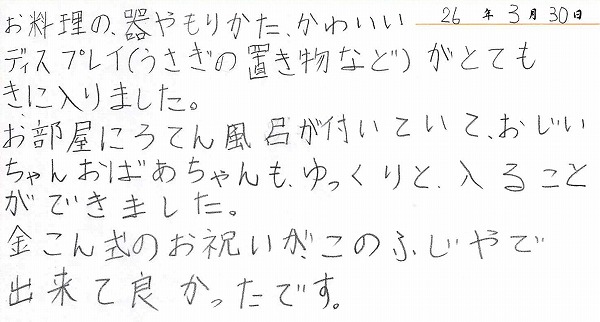 26 年 3 月 30 日
お料理の、器やもりかた、かわいい
ディスプレイ(うさぎの置き物など)がとても
きに入りました。
お部屋にろてん風呂が付いていて、おじい
ちゃんおばあちゃんも、ゆっくりと、入ること
ができました。
金こん式のお祝いが、このふじやで
出来て良かったです。